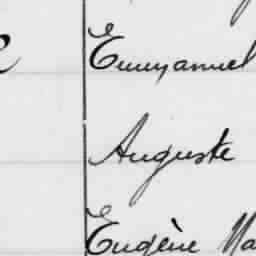 Emmanuel
Auguste
Eugène